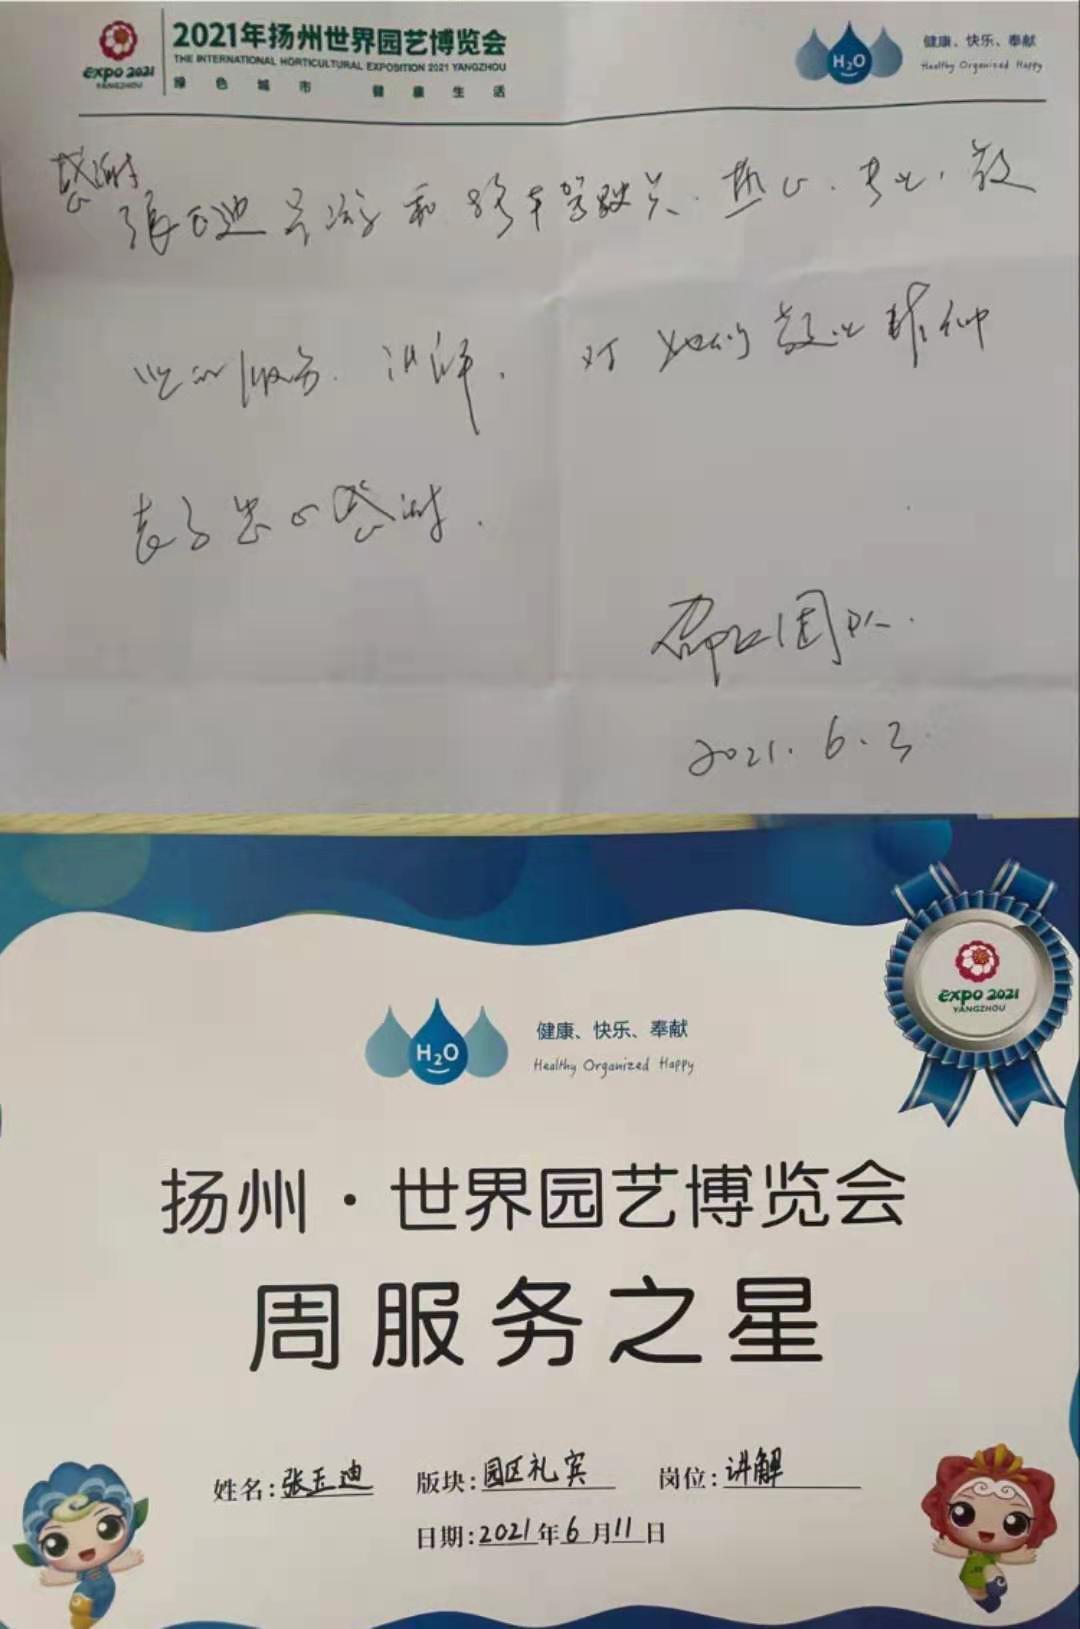 2021年扬州世界园艺博览会
THE INTERNATIONAL HORTICULTURAL EXPOSITION 2021 YANGZHOU
绿色城市 健康生活
expo 2021
YANGZHOU
H₂O
健康、快乐、奉献
Healthy Organized Happy
感谢
张玉迪 和 车驾驶员.热心.专业.敬
业的服务.讲解.对她们敬业精神
表示衷心感谢.
团队.
2021.6.3
expo 2021
YANGZHOU
H₂O
健康、快乐、奉献
Healthy Organized Happy
扬州·世界园艺博览会
周服务之星
姓名:张玉迪 版块:园区礼宾 岗位:讲解
日期:2021年6月11日